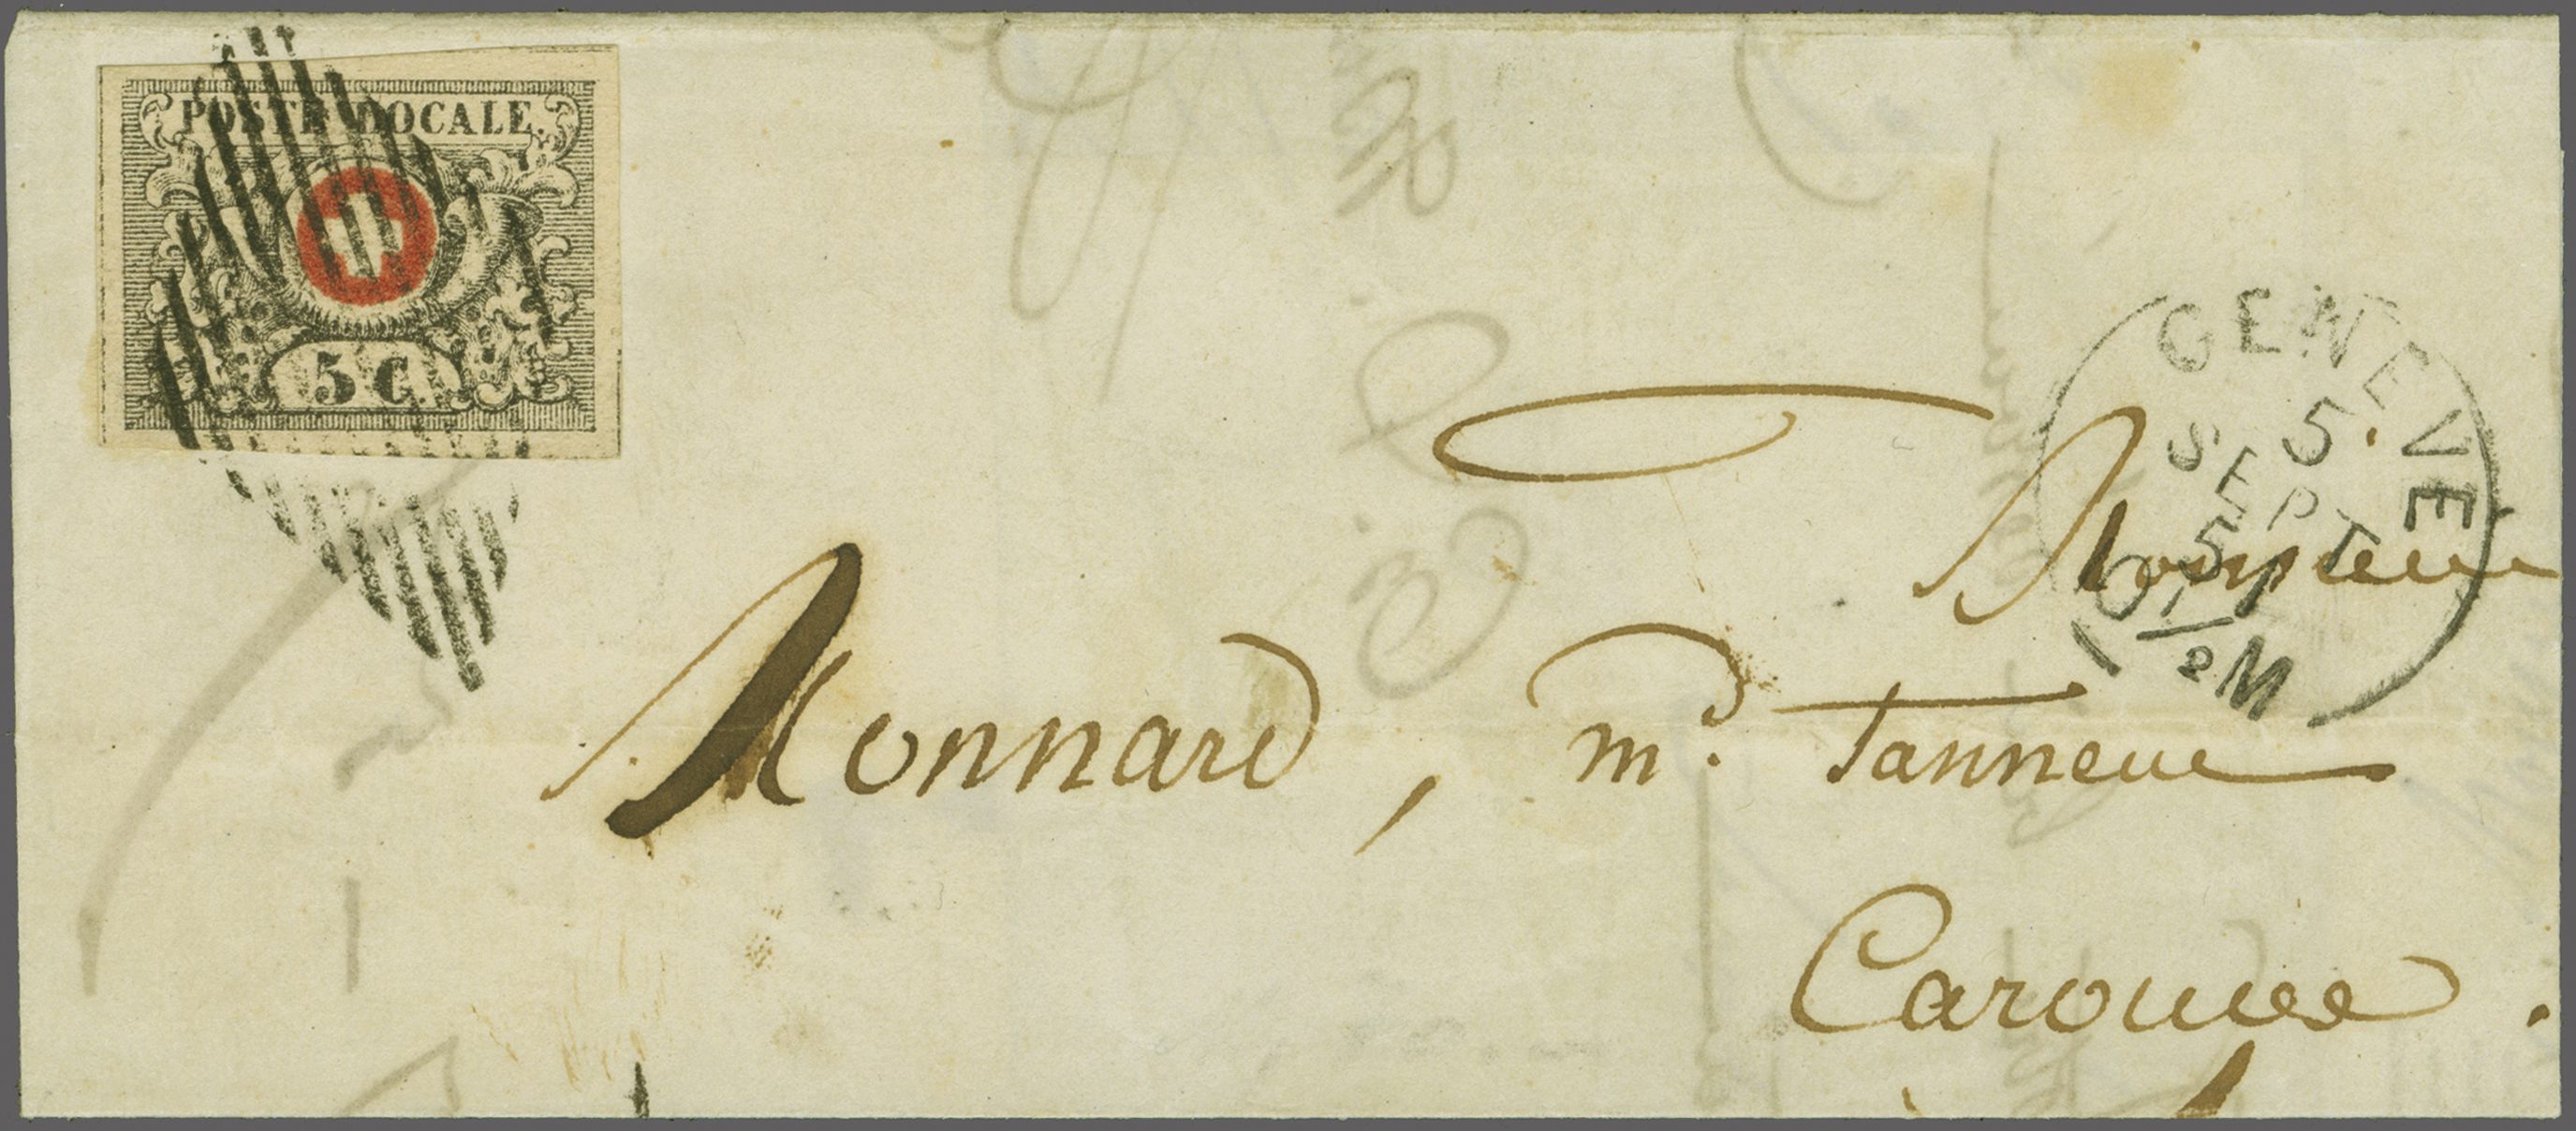 POSTE LOCALE.
5 c.
GENEVE
5.
SEPT
51
1/2 M
Monsieur
Monnard, md. Tanneur
Carouge.